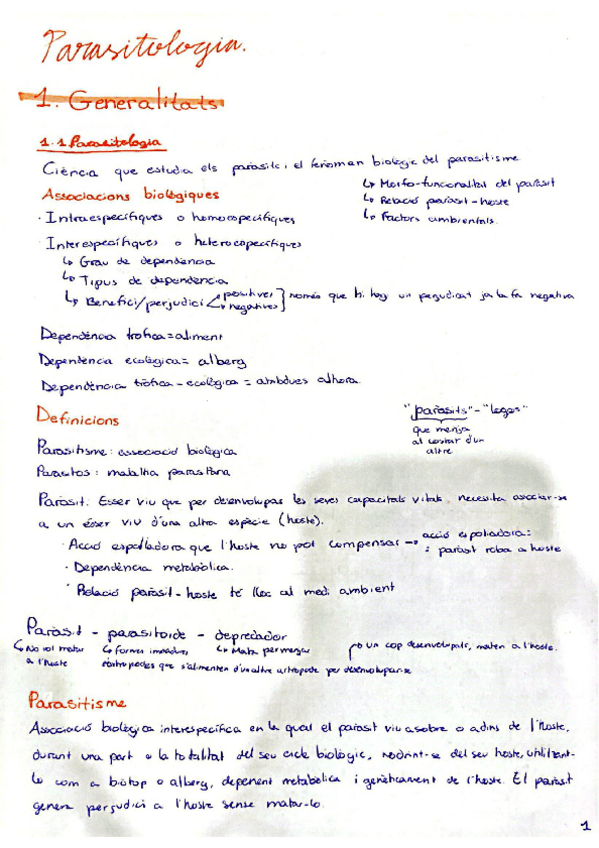 Parasitologia.
1. Generalitats
1.1 Parasitologia
Ciència que estudia els paràsits i el fenomen biològic del parasitisme
↳ Morfo-funcionalitat del paràsit
↳ Relació paràsit-hoste
↳ Factors ambientals.
Associacions biològiques
· Intraespecífiques o homoespecífiques
· Interespecífiques o heteroespecífiques
↳ Grau de dependència
↳ Tipus de dependència
↳ Benefici/perjudici positives negatives } només que hi hagi un perjudicat ja la fa negativa
Dependència tròfica = aliment
Dependència ecològica = alberg
Dependència tròfica-ecològica = ambdues alhora.
Definicions
"paràsits" - "logos"
que menja
al costat d'un
altre
Parasitisme: associació biològica
Parasitos: malaltia parasitària
Paràsit: Ésser viu que per desenvolupar les seves capacitats vitals, necessita associar-se
a un ésser viu d'una altra espècie (hoste).
· Acció espoliadora que l'hoste no pot compensar → acció espoliadora:
: paràsit roba a hoste
· Dependència metabòlica.
· Relació paràsit-hoste té lloc al medi ambient
Paràsit - parasitoide - depredador
↳ No vol matar
a l'hoste
↳ formes immadures
d'artròpodes que s'alimenten d'un altre artròpode per desenvolupar-se
↳ Mata per menjar
un cop desenvolupats, maten a l'hoste.
Parasitisme
Associació biològica interespecífica en la qual el paràsit viu a sobre o a dins de l'hoste,
durant una part o la totalitat del seu cicle biològic, nodrint-se del seu hoste, utilitzant-
lo com a biòtop o alberg, depenent metabòlica i genèticament de l'hoste. El paràsit
genera perjudici a l'hoste sense matar-lo.
1